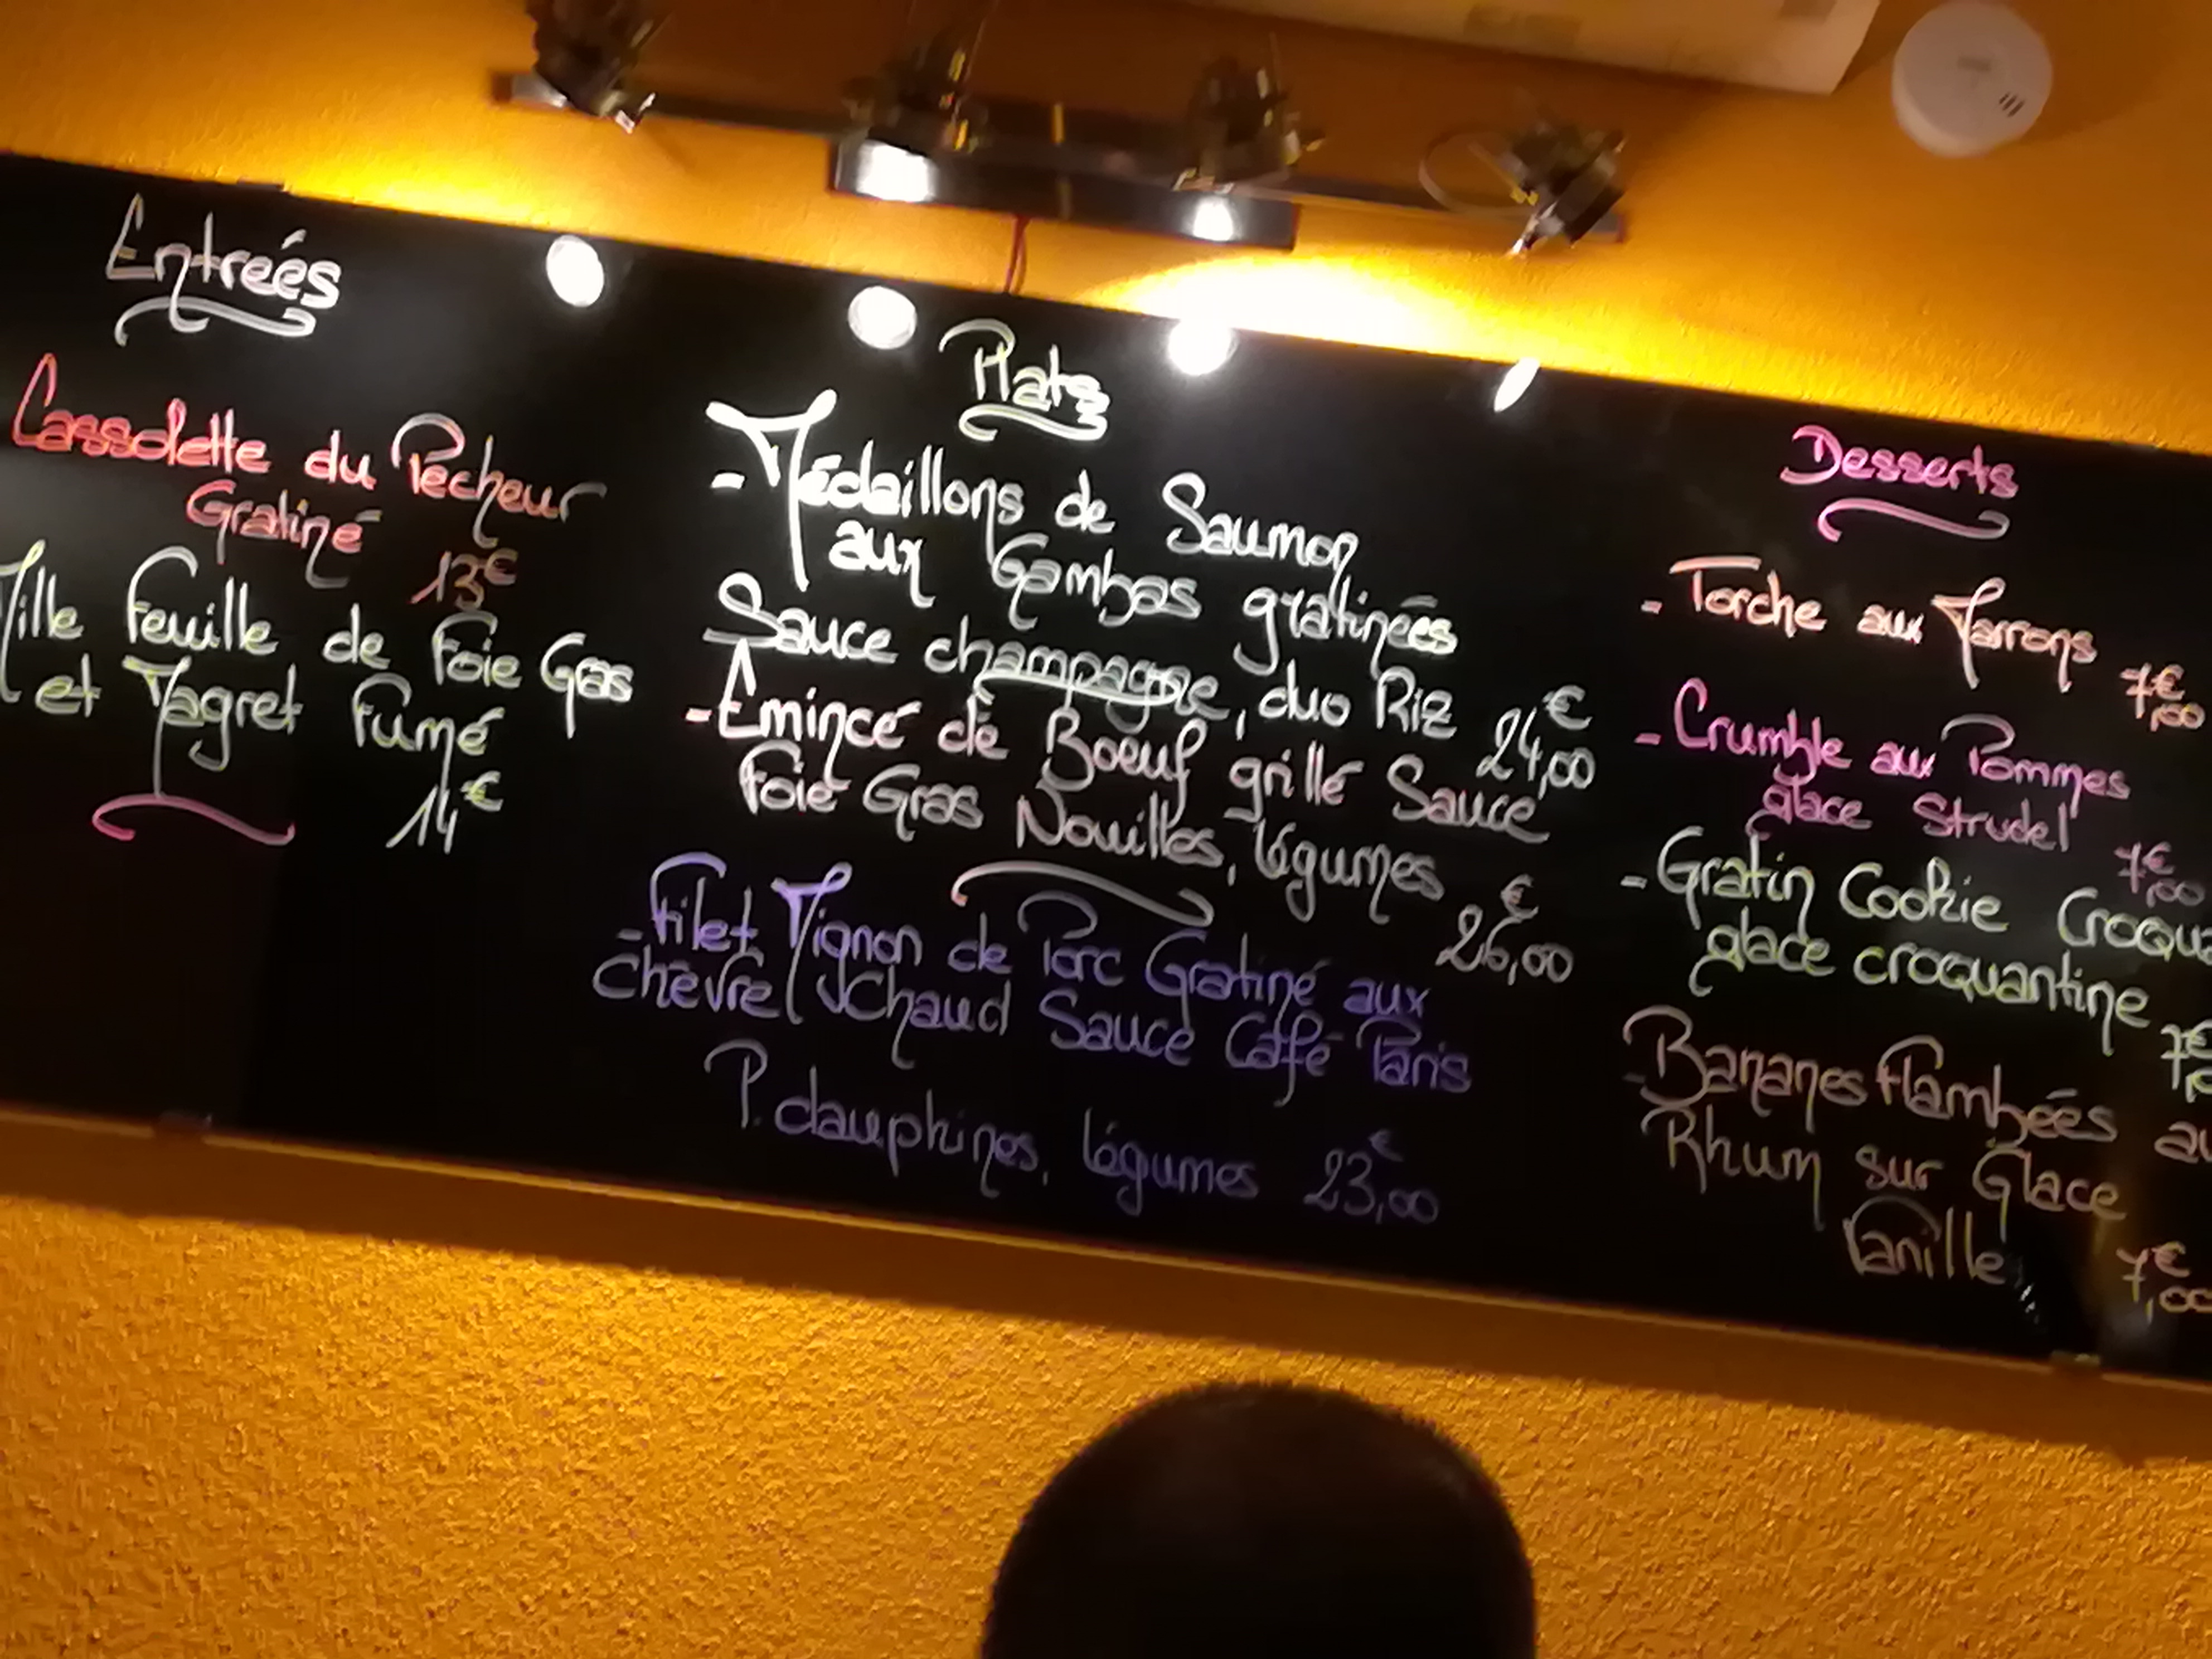 Entreés
Cassolette du Pêcheur
Gratiné
13€
Mille Feuille de Foie Gras
et Magret Fumé
14€
Plats
- Médaillons de Saumon
aux Gambas gratinées
Sauce champagne, duo Riz 24,00€
- Emincé de Boeuf grillé Sauce
Foie Gras Nouilles, légumes
26,00€
- Filet Mignon de Porc Gratiné aux
Chèvre Chaud Sauce Café Paris
P. dauphines, légumes 23,00€
Desserts
- Torche aux Marrons
7,00€
- Crumble aux Pommes
glace Strudel
7,00€
- Gratin Cookie Croqua
glace croquantine
7€
- Bananes Flambées au
Rhum sur Glace
Vanille
7,00€